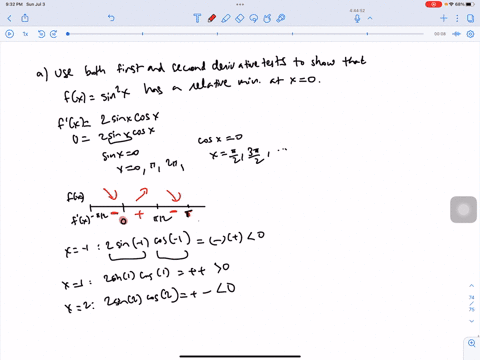 9:32 PM Sun Jul 3
68%
1x
a) Use both first and second derivative tests to show that
f(x) = sin²x has a relative min. at x=0.
f'(x) = 2 sinx cosx
0 = 2 sinx cosx
sinx = 0 cosx = 0
x = 0, π, 2π, x = π/2, 3π/2, ...
f(x)
f'(x) -π/2 - 0 + π/2 - π
x = -1 : 2 sin(-1) cos(-1) = (-)(+) < 0
x = 1 : 2 sin(1) cos(1) = + + > 0
x = 2 : 2 sin(2) cos(2) = + - < 0
74
75